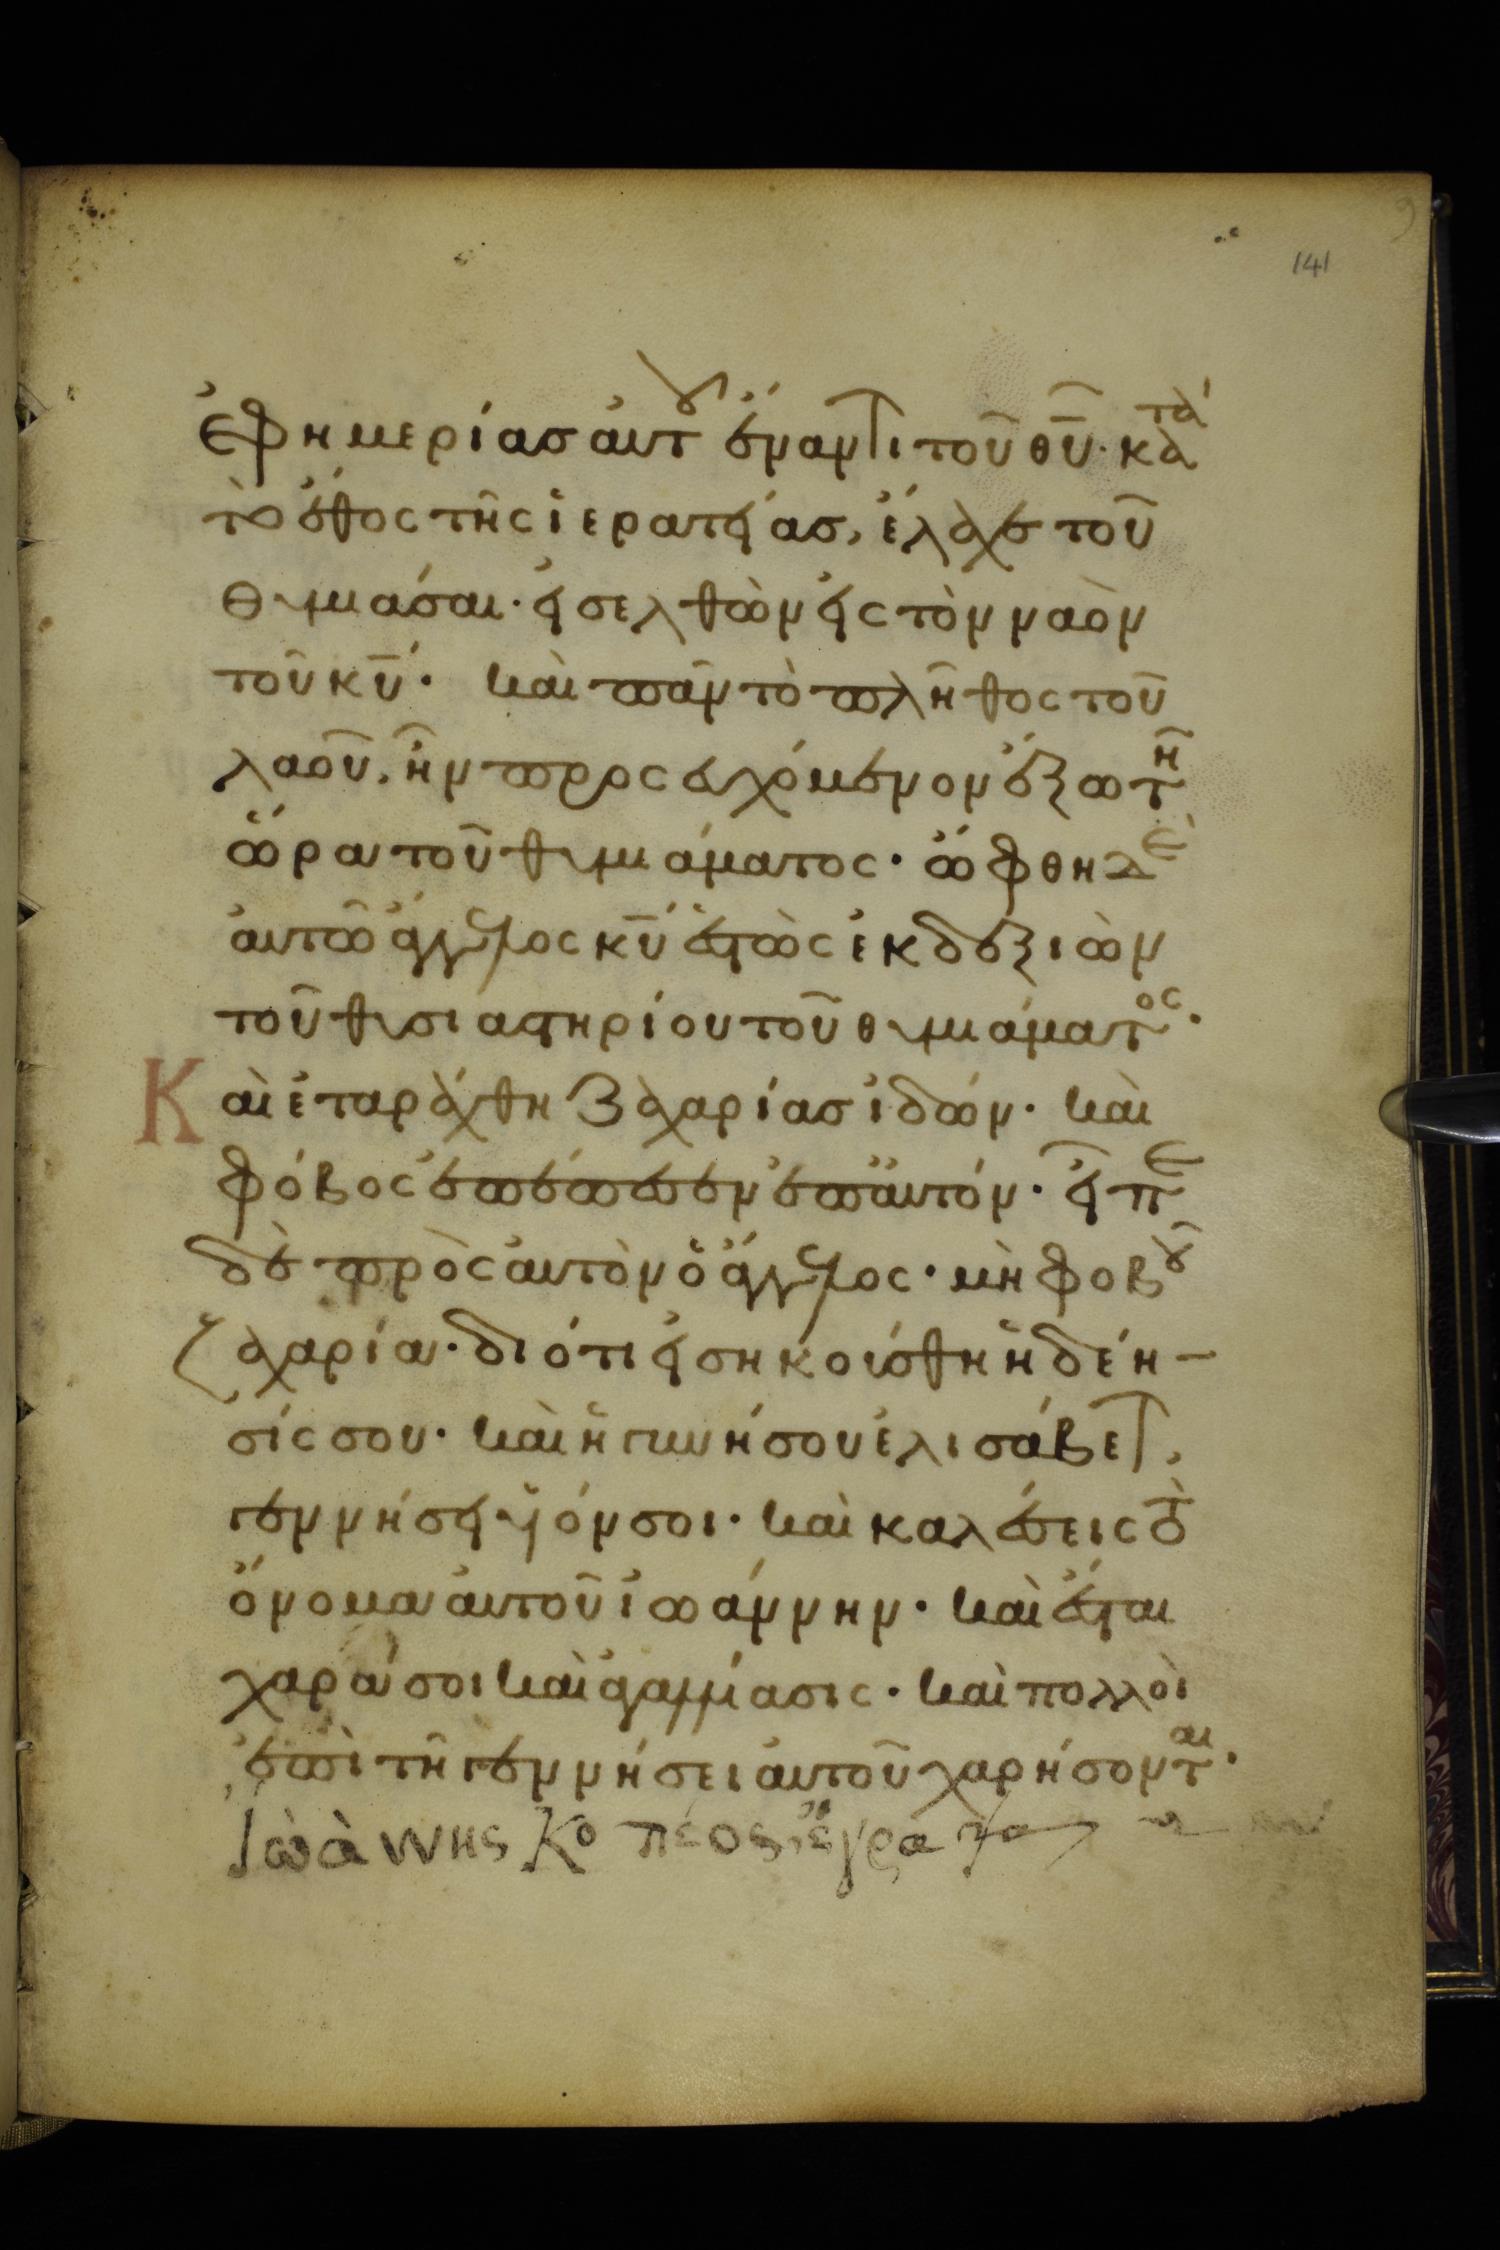 141
ἐφημερίας αὐτοῦ ἔναντι τοῦ θ̅υ̅· κατὰ
τὸ ἔθος τῆς ἱερατείας, ἔλαχε τοῦ
θυμιάσαι· εἰσελθὼν εἰς τὸν ναὸν
τοῦ κ̅υ̅· καὶ πᾶν τὸ πλῆθος τοῦ
λαοῦ, ἦν προσευχόμενον ἔξω τῆ
ὥρα τοῦ θυμιάματος· ὤφθη δὲ
αὐτῶ ἄγγελος κ̅υ̅ ἑστὼς ἐκ δεξιῶν
τοῦ θυσιαστηρίου τοῦ θυμιάματος·
Καὶ ἐταράχθη Ζαχαρίας ἰδών· καὶ
φόβος ἐπέπεσεν ἐπ' αὐτόν· εἶπε
δὲ πρὸς αὐτὸν ὁ ἄγγελος· μὴ φοβοῦ
ζαχαρία· διότι εἰσηκούσθη ἡ δέη-
σίς σου· καὶ ἡ γυνή σου ἐλισάβετ,
γεννήσει υἱόν σοι· καὶ καλέσεις τὸ
ὄνομα αὐτοῦ ἰωάννην· καὶ ἔσται
χαρά σοι καὶ ἀγαλλίασις· καὶ πολλοὶ
ἐπὶ τῆ γεννήσει αὐτοῦ χαρήσονται·
Ἰωὰννης Κο πέος ἔγραψα